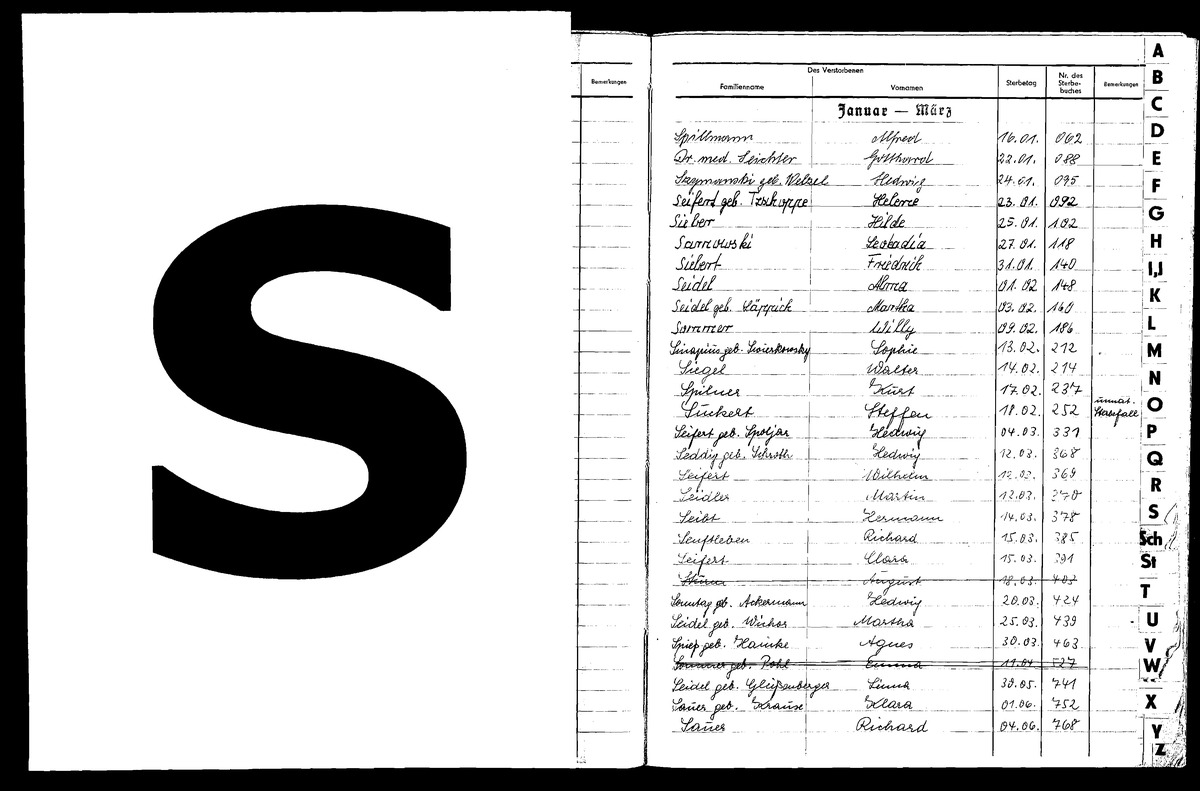 S
Bemerkungen
Des Verstorbenen
Familienname Vornamen Sterbetag Nr. des Sterbe-buches Bemerkungen
Januar — März
Spillmann Alfred 16.01. 062
Dr. med. Seichter Gotthard 22.01. 088
Szymanski geb. Welzel Hedwig 24.01. 095
Seifert geb. Tzschoppe Helene 23.01. 092
Sieber Hilde 25.01. 102
Sarnowski Leokadia 27.01. 118
Siebert Friedrich 31.01. 140
Seidel Alma 01.02 148
Seidel geb. Martha 03.02. 160
Sommer Willy 09.02. 186
Sinapius geb. Swierkowsky Sophie 13.02. 212
Siegel Walter 14.02. 214
Spilner Kurt 17.02. 237
Suckert Steffen 18.02. 252 unnat. Sterbefall
Seifert geb. Spoljar Hedwig 04.03. 331
Seddig geb. Schroth Hedwig 12.03. 368
Seifert Wilhelm 12.03. 369
Seidler Martin 12.03. 370
Seibt Hermann 14.03. 378
Senftleben Richard 15.03. 385
Seifert Clara 15.03. 391
Sturm August 18.03. 403
Sonntag geb. Ackermann Hedwig 20.03. 424
Seidel geb. Martha 25.03. 439
Spieß geb. Hainke Agnes 30.03. 463
Sommer geb. Pohl Emma 11.04 527
Seidel geb. Gleißenberger Linna 30.05. 741
Sauer geb. Krause Klara 01.06. 752
Sauer Richard 04.06. 768
A
B
C
D
E
F
G
H
I,J
K
L
M
N
O
P
Q
R
S
Sch
St
T
U
V
W
X
Y
Z